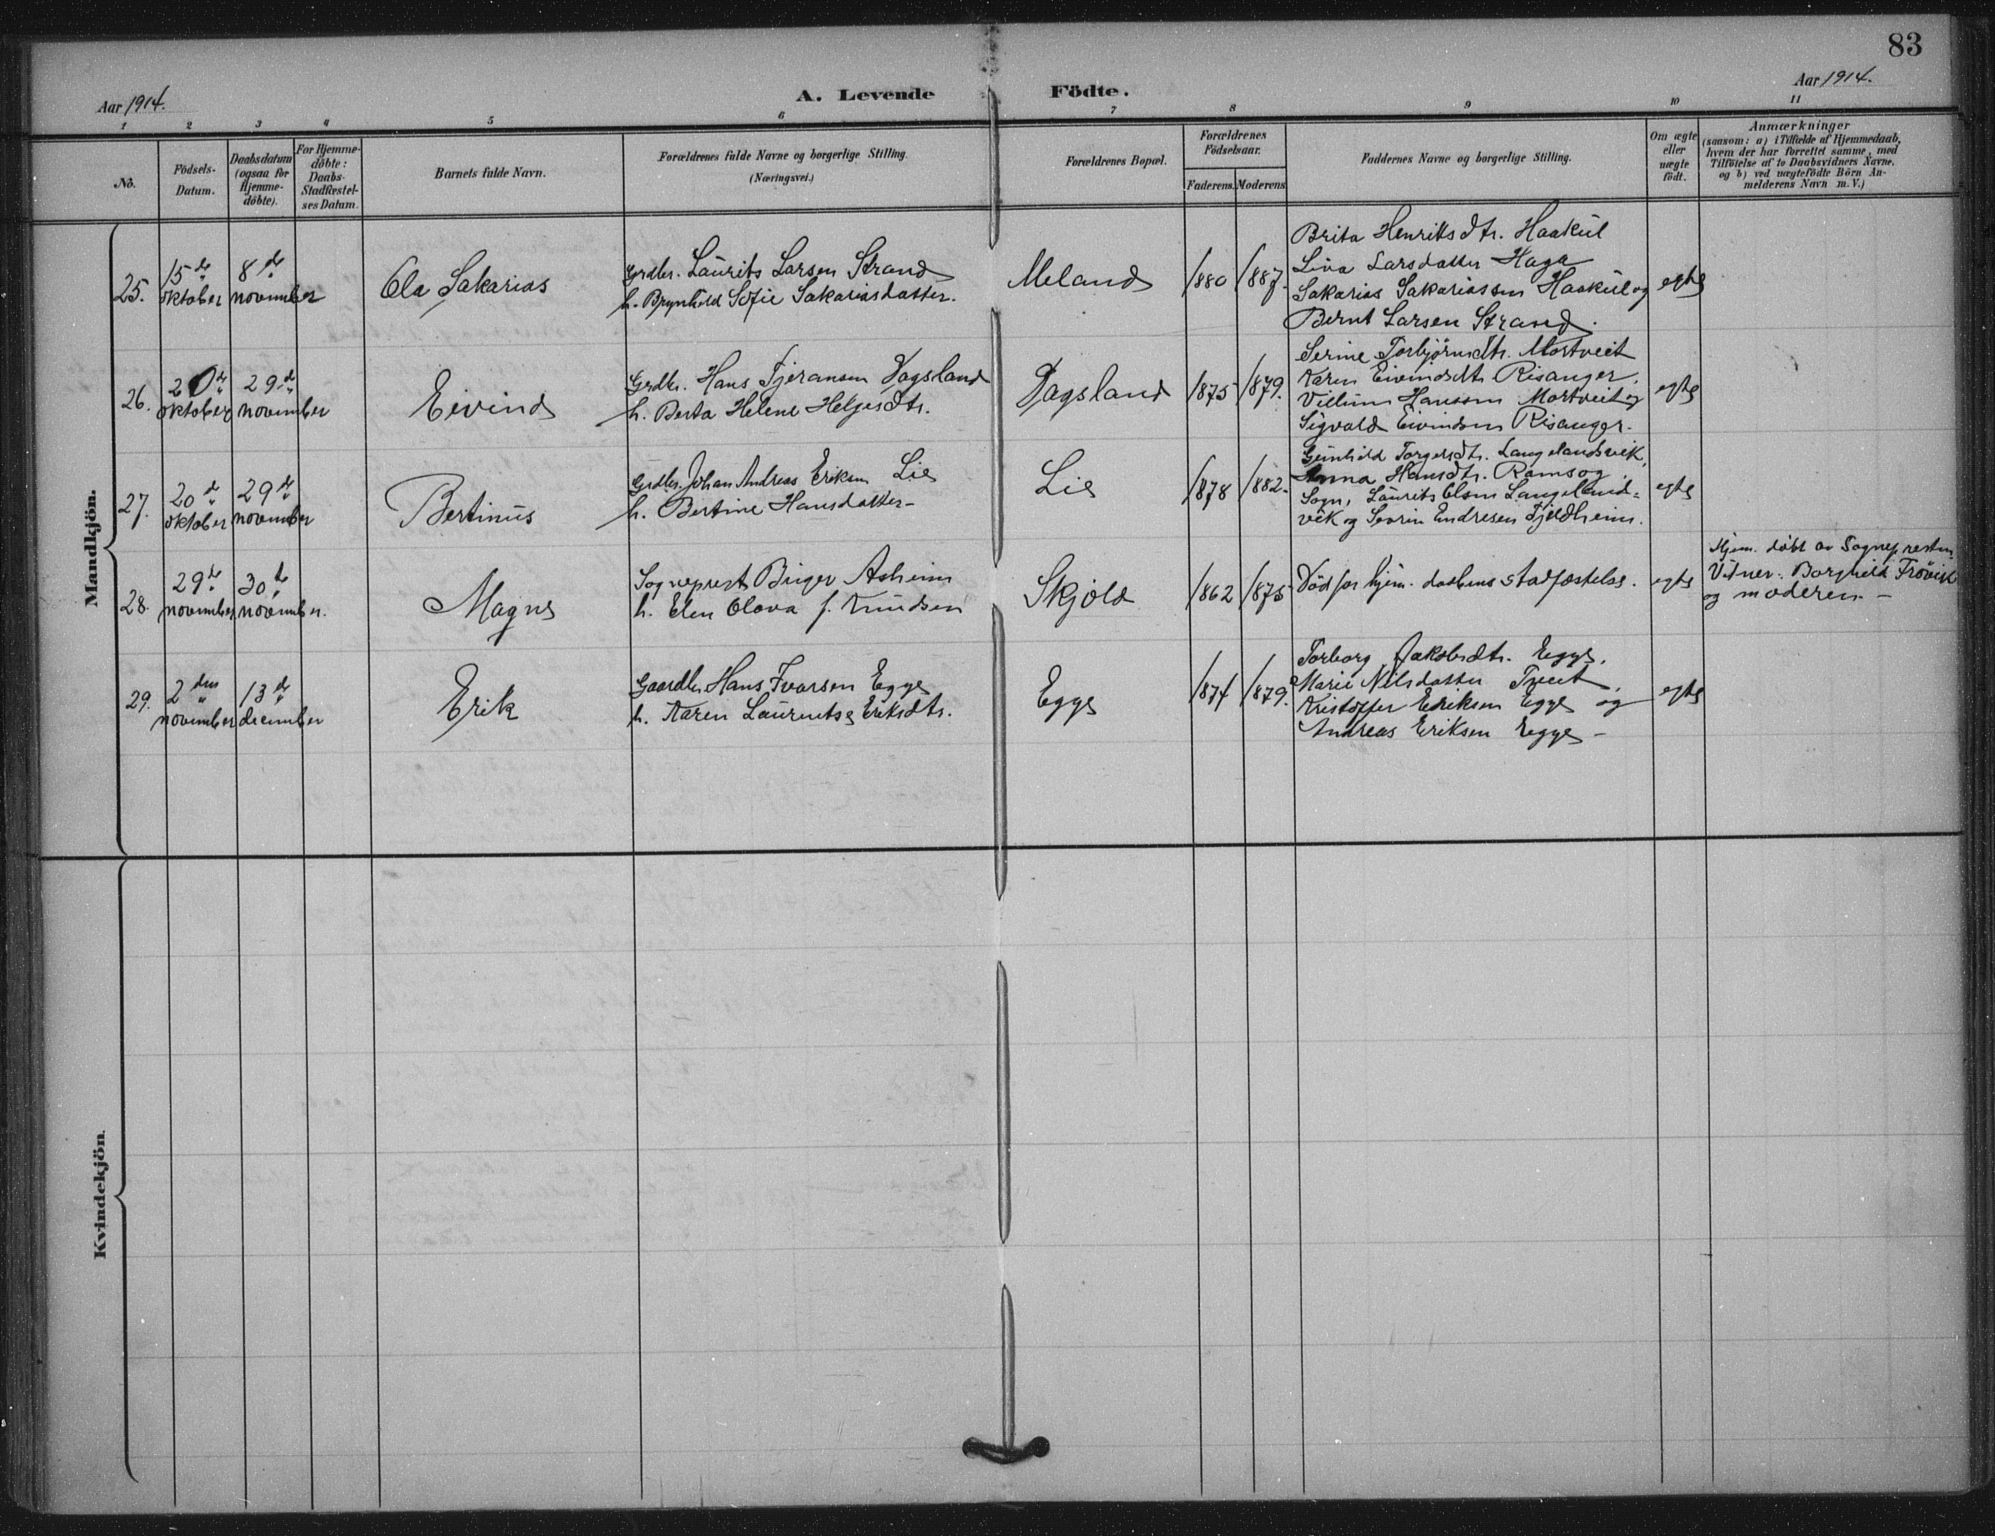 83
Aar 1914.
A. Levende Födte.
Aar 1914.
1 2 3 4 5 6 7 8 9 10 11
No.
Födsels-Datum.
Daabsdatum (ogsaa for Hjemme-döbte).
For Hjemme-döbte: Daabs-Stadfæstel-ses Datum.
Barnets fulde Navn.
Forældrenes fulde Navne og borgerlige Stilling.
(Næringsvei.)
Forældrenes Bopæl.
Forældrenes Födselsaar.
Faderens. Moderens.
Faddernes Navne og borgerlige Stilling.
Om ægte eller uægte födt.
Anmærkninger
(saasom: a) i Tilfælde af Hjemmedaab,
hvem der har forrettet samme, med
Tilföielse af to Daabsvidners Navne,
og b) ved uægtefödte Börn An-
melderens Navn m. V.)
Mandkjön.
25.
15 de oktober
8 de november
Ola Sakarias
Grdbr. Laurits Larsen Strand
h. Brynhild Sofie Sakariasdatter.
Meland
1880 1887.
Brita Henriksdtr. Haakul
Lina Larsdatter Haga
Sakarias Sakariassen Haakul og
Bernt Larsen Strand.
egte
26.
20 de oktober
29 de november
Eivind
Grdbr. Hans Tjeransen Dagsland
h. Berta Helene Helgesdtr.
Dagsland
1875 1879.
Serine Torbjörnsdtr. Mortveit
Karen Eivindsdtr. Risanger.
Villum Hanssen Mortveit og
Sigvald Eivindsen Risanger.
egte
27.
20 de oktober
29 de november
Bertinus
Grdbr. Johan Andreas Eriksen Lie
h. Bertine Hansdatter -
Lie
1878 1882.
Gunhild Torgersdtr. Langelandsvik,
Anna Hansdtr. Rams og
Sogn, Laurits Olsen Langeland=
vik og Severin Endresen Fjeldheim.
egte
28.
29 de november
30 te november.
Magne
Sogneprest Birger Asheim
h. Elen Olava f. Knudsen
Skjold
1862 1875
Död för hjem. daabens stadfæstelse.
egte
Hjem. döbt av Sognepresten
Vitner: Borghild Frövik
og moderen -
29.
2 den november
13 de december
Erik
Gaardbr. Hans Ivarsen Egge
h. Karen Lauentse Eriksdtr.
Egge
1874 1879.
Torborg Jakobsdtr. Egge,
Marie Nilsdatter Tveit,
Kristoffer Eriksen Egge og
Andreas Eriksen Egge -
egte
Kvindekjön.